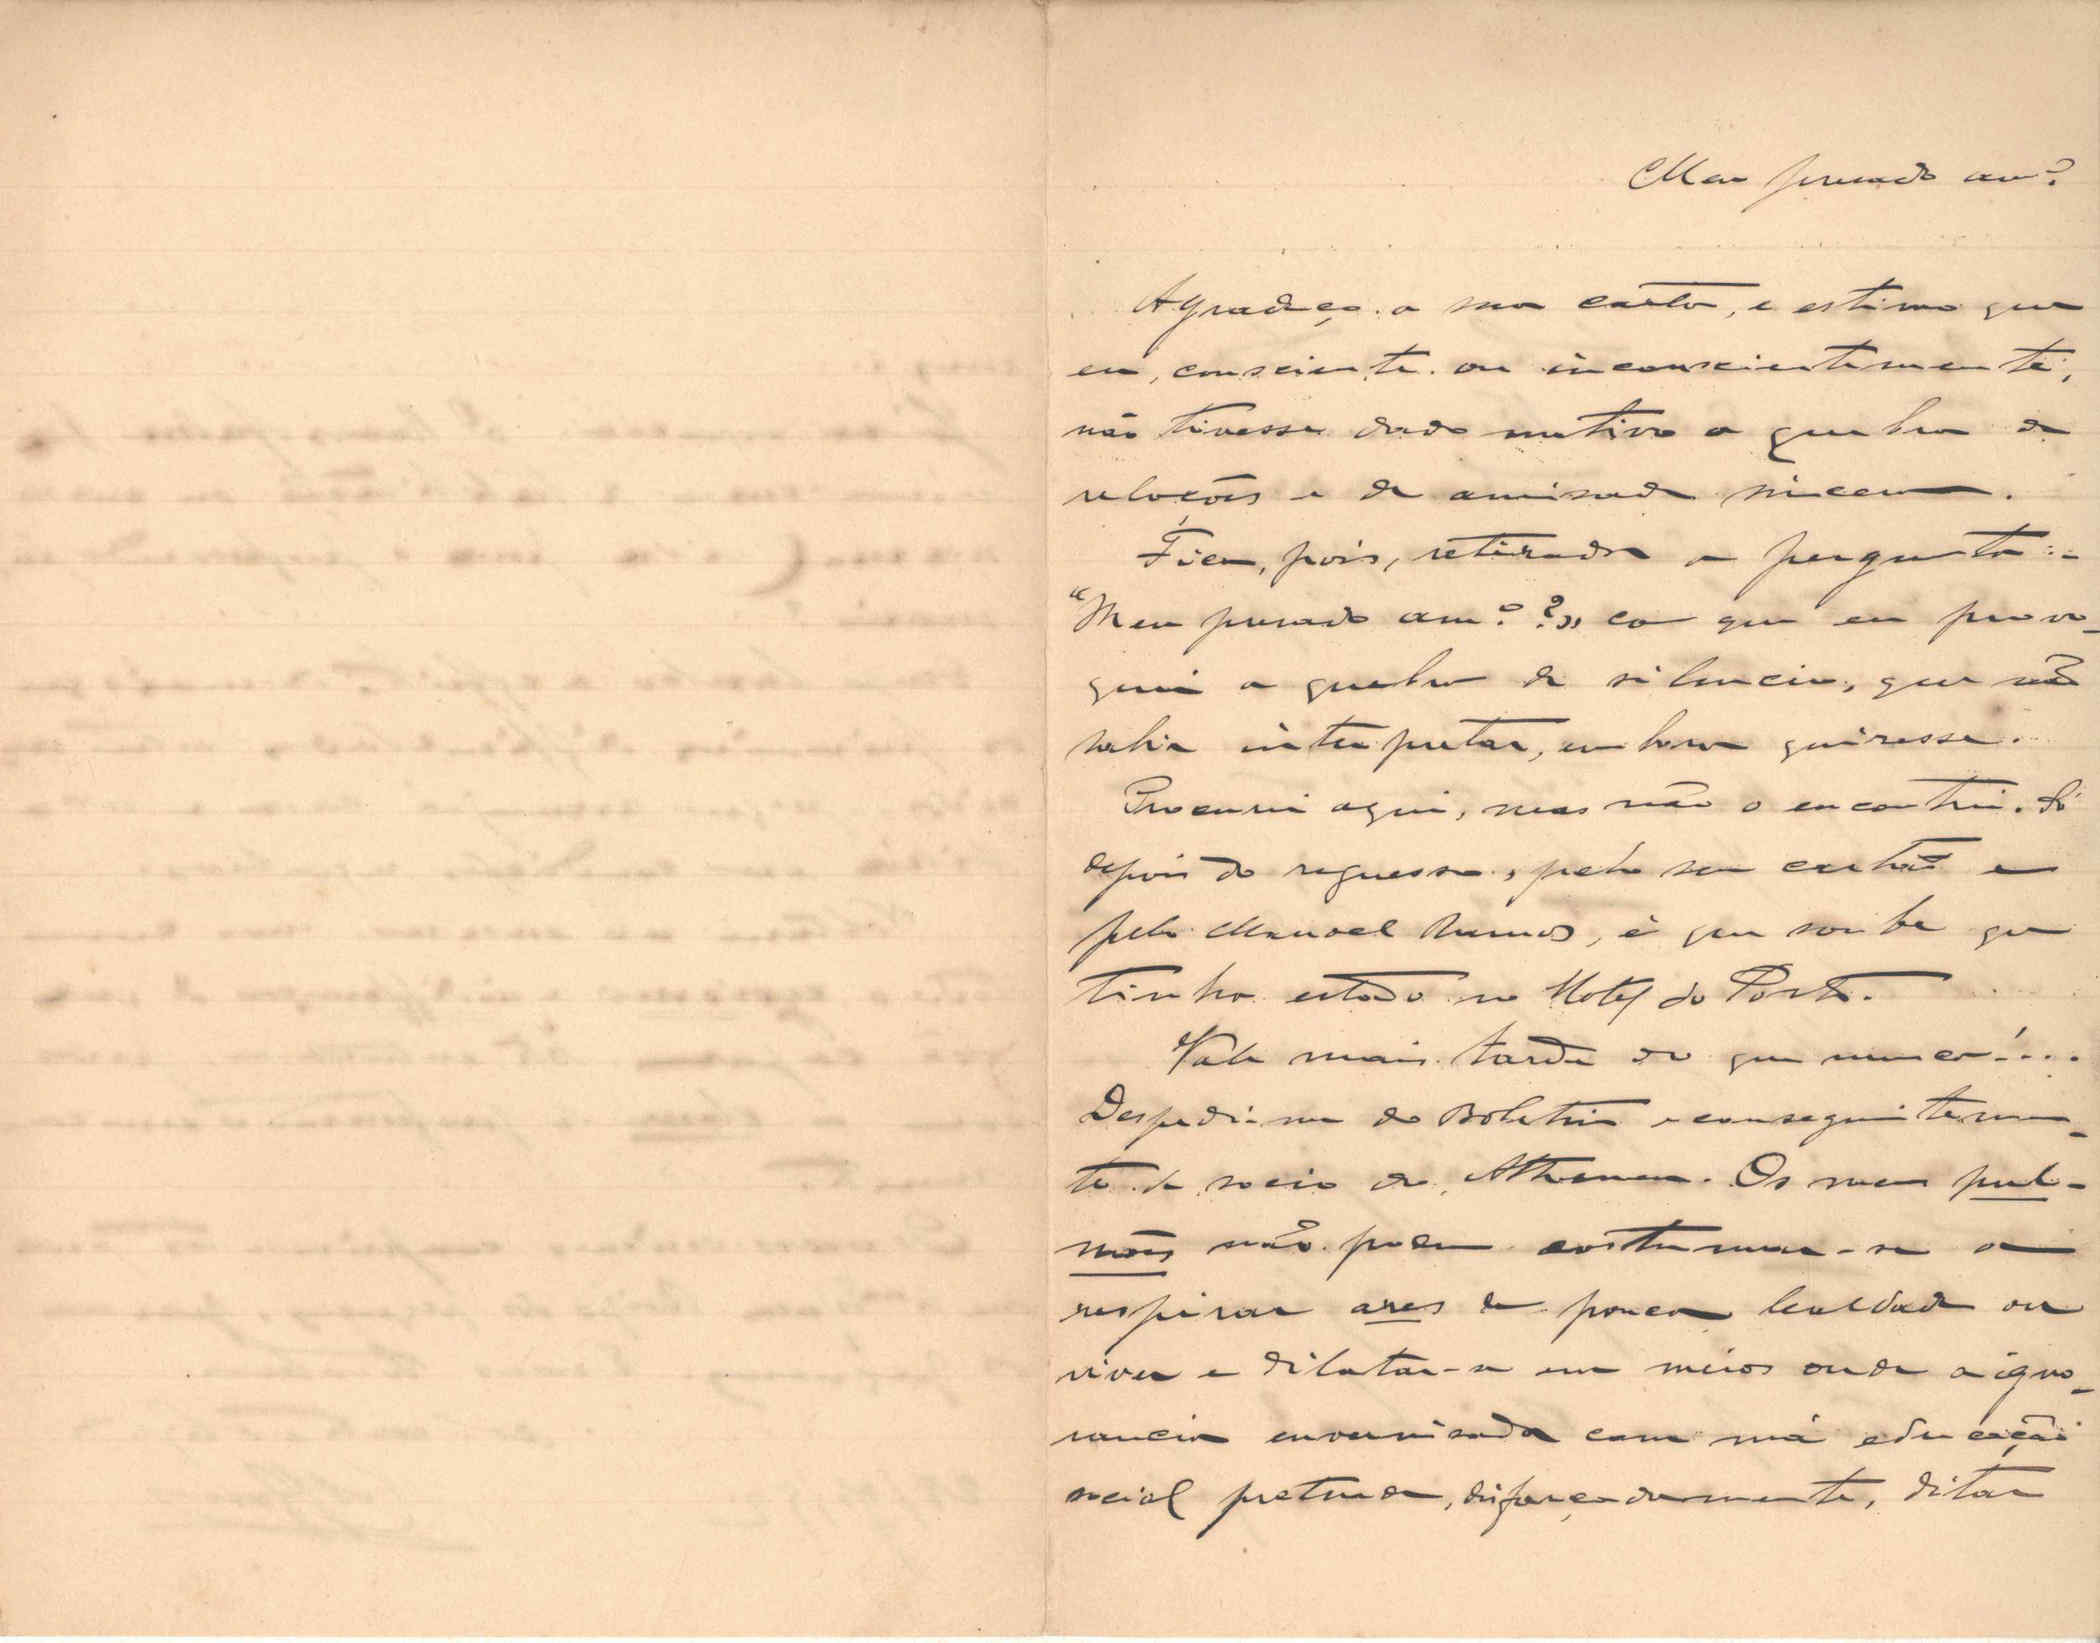 Meu presado am.º
Agradeço a sua carta, e estimo que
eu, consciente ou inconscientemente,
não tivesse dado motivo a quebra de
relações e de amisade sincera.
Fica, pois, retirada a pergunta:-
"Meu presado am.º?" co que eu provo-
quei a quebra de silencio, que não
sabia interpretar, embora quizesse.
Procurei aqui, mas não o encontrei. Só
depois do regresso, pelo seu cartão e
pelo Manoel Nunes, é que soube que
tinha estado no Hotel do Porto.
Vale mais tarde do que nunca!...
Despedi-me do Boletim e conseguintemen-
te de socio do Atheneu. Os meus pul-
mões não podem costumar-se a
respirar ares de pouca lealdade ou
viver e dilatar-se em meios onde a igno-
rancia envernisada com má educação
social pretende, disfarçadamente, ditar